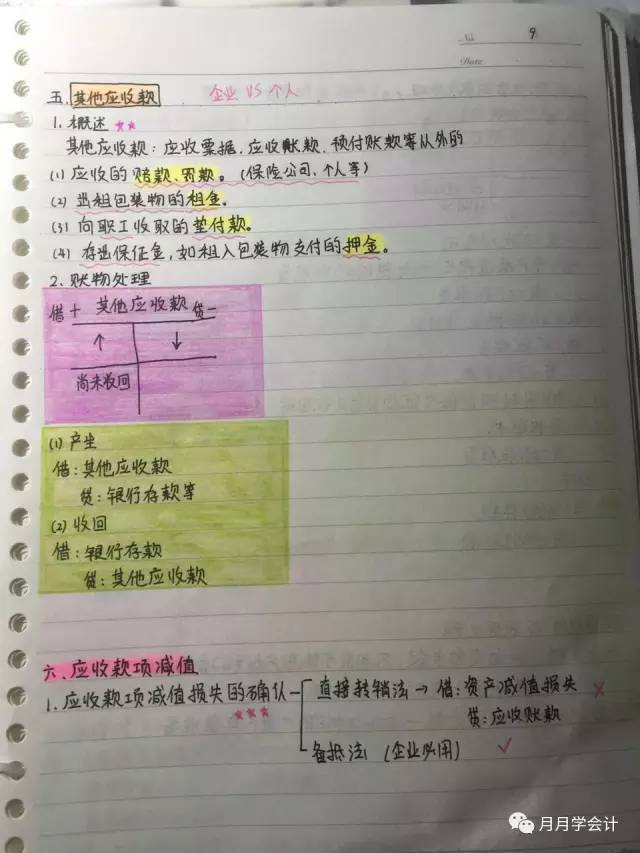 No. 9
Date
五.其他应收款 企业 VS 个人
1.概述 ★★
其他应收款：应收票据，应收账款，预付账款等从外的
(1) 应收的赔款、罚款。(保险公司、个人等)
(2) 出租包装物的租金。
(3) 向职工收取的垫付款。
(4) 存出保证金，如租入包装物支付的押金。
2.账物处理
借 + 其他应收款 贷 -
↑ ↓
尚未收回
(1) 产生
借：其他应收款
贷：银行存款等
(2) 收回
借：银行存款
贷：其他应收款
六.应收款项减值
1.应收款项减值损失的确认 直接转销法 → 借：资产减值损失 ×
★★★ 贷：应收账款
备抵法 (企业必用) ✓
月月学会计